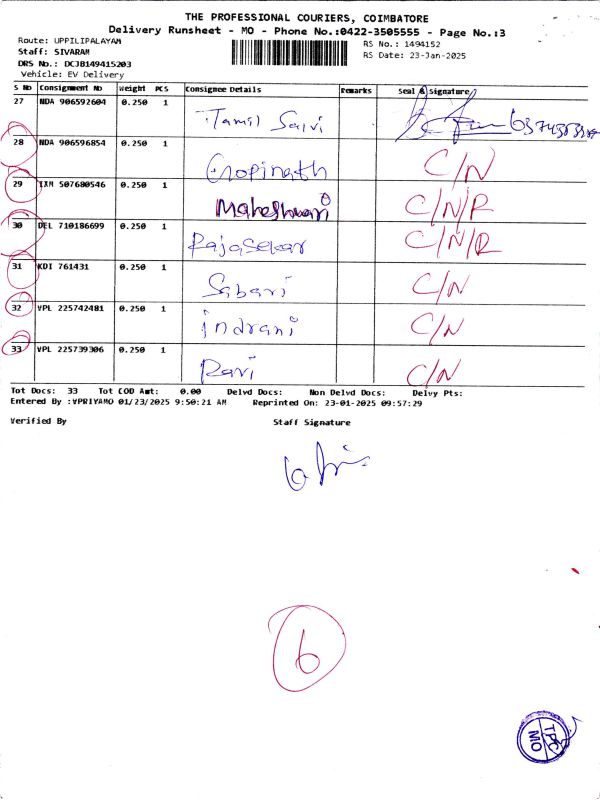 THE PROFESSIONAL COURIERS, COIMBATORE
Delivery Runsheet - MO - Phone No.:0422-3505555 - Page No.:3
Route: UPPILIPALAYAM
RS No.: 1494152
Staff: SIVARAM
RS Date: 23-Jan-2025
DRS No.: DCJB149415203
Vehicle: EV Delivery
S No Consignment No Weight PCS Consignee Details Remarks Seal & Signature
27 NDA 906592604 0.250 1 Tamil Selvi
28 NDA 906596854 0.250 1 Gropinath C/N
29 IXM 507680546 0.250 1 Maheshwari C/N/R
30 DEL 710186699 0.250 1 Rajasekar C/N/R
31 KDI 761431 0.250 1 Sabari C/N
32 VPL 225742481 0.250 1 indrani C/N
33 VPL 225739306 0.250 1 Ravi C/N
Tot Docs: 33 Tot COD Amt: 0.00 Delvd Docs: Non Delvd Docs: Delvy Pts:
Entered By :VPRIYAMO 01/23/2025 9:50:21 AM Reprinted On: 23-01-2025 09:57:29
Verified By Staff Signature
6
TPC
MO